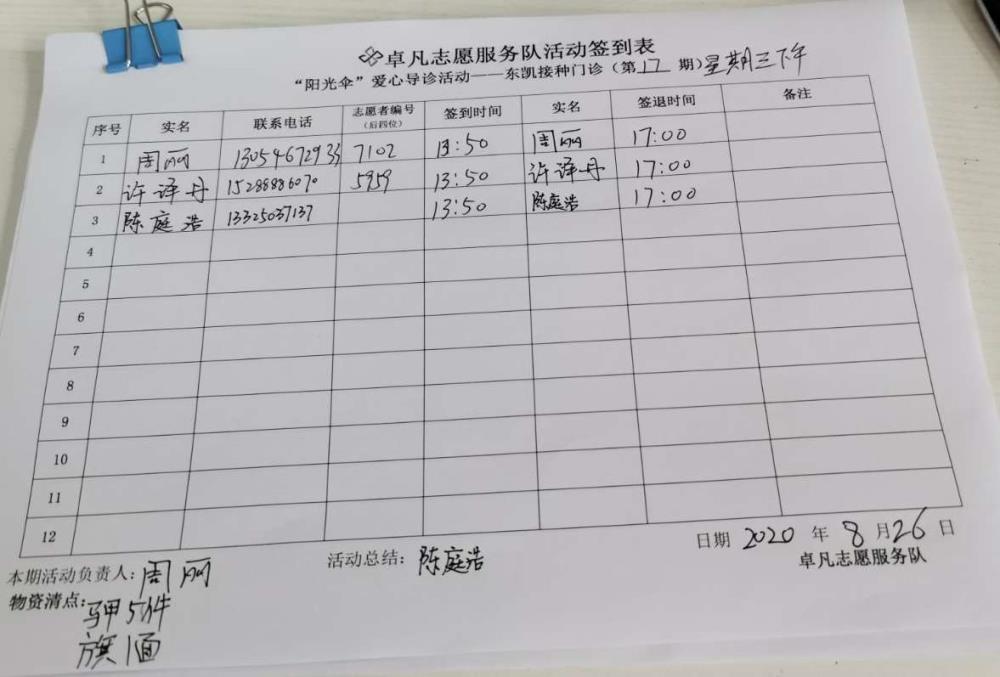 卓凡志愿服务队活动签到表
“阳光伞”爱心导诊活动——东凯接种门诊（第17期）星期三下午
序号 实名 联系电话 志愿者编号（后四位） 签到时间 实名 签退时间 备注
1 周丽 13054672933 7102 13:50 周丽 17:00
2 许译丹 15288886070 5959 13:50 许译丹 17:00
3 陈庭浩 13325037137 13:50 陈庭浩 17:00
4
5
6
7
8
9
10
11
12
日期 2020 年 8 月 26 日
卓凡志愿服务队
本期活动负责人：周丽 活动总结：陈庭浩
物资清点：马甲5件
旗1面